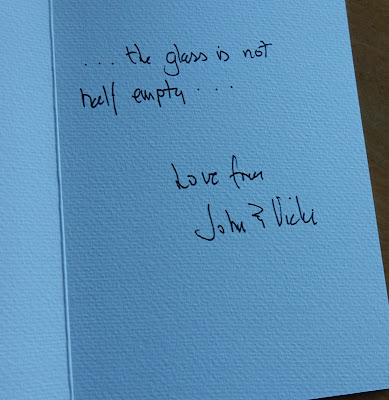 ... the glass is not
half empty ...
Love from
John & Vicki